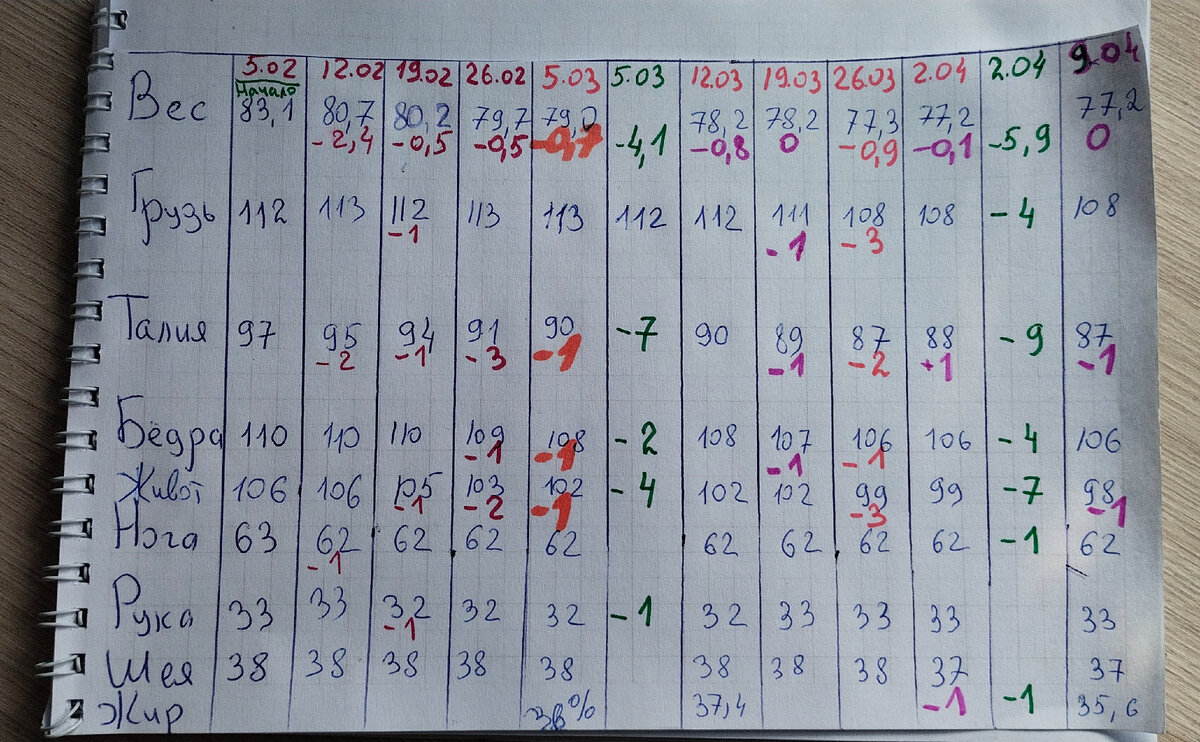 5.02 12.02 19.02 26.02 5.03 5.03 12.03 19.03 26.03 2.04 2.04 9.04
Начало
Вес 83,1 80,7 80,2 79,7 79,0 78,2 78,2 77,3 77,2 77,2
-2,4 -0,5 -0,5 -0,7 -4,1 -0,8 0 -0,9 -0,1 -5,9 0
Грузь 112 113 112 113 113 112 112 111 108 108 -4 108
-1 -1 -3
Талия 97 95 94 91 90 -7 90 89 87 88 -9 87
-2 -1 -3 -1 -1 -2 +1 -1
Бёдра 110 110 110 109 108 -2 108 107 106 106 -4 106
-1 -1 -1 -1
Живот 106 106 105 103 102 -4 102 102 99 99 -7 98
-1 -2 -1 -3 -1
Нога 63 62 62 62 62 62 62 62 62 -1 62
-1
Рука 33 33 32 32 32 -1 32 33 33 33 33
-1
Шея 38 38 38 38 38 38 38 38 37 37
Жир 38% 37,4 -1 -1 35,6